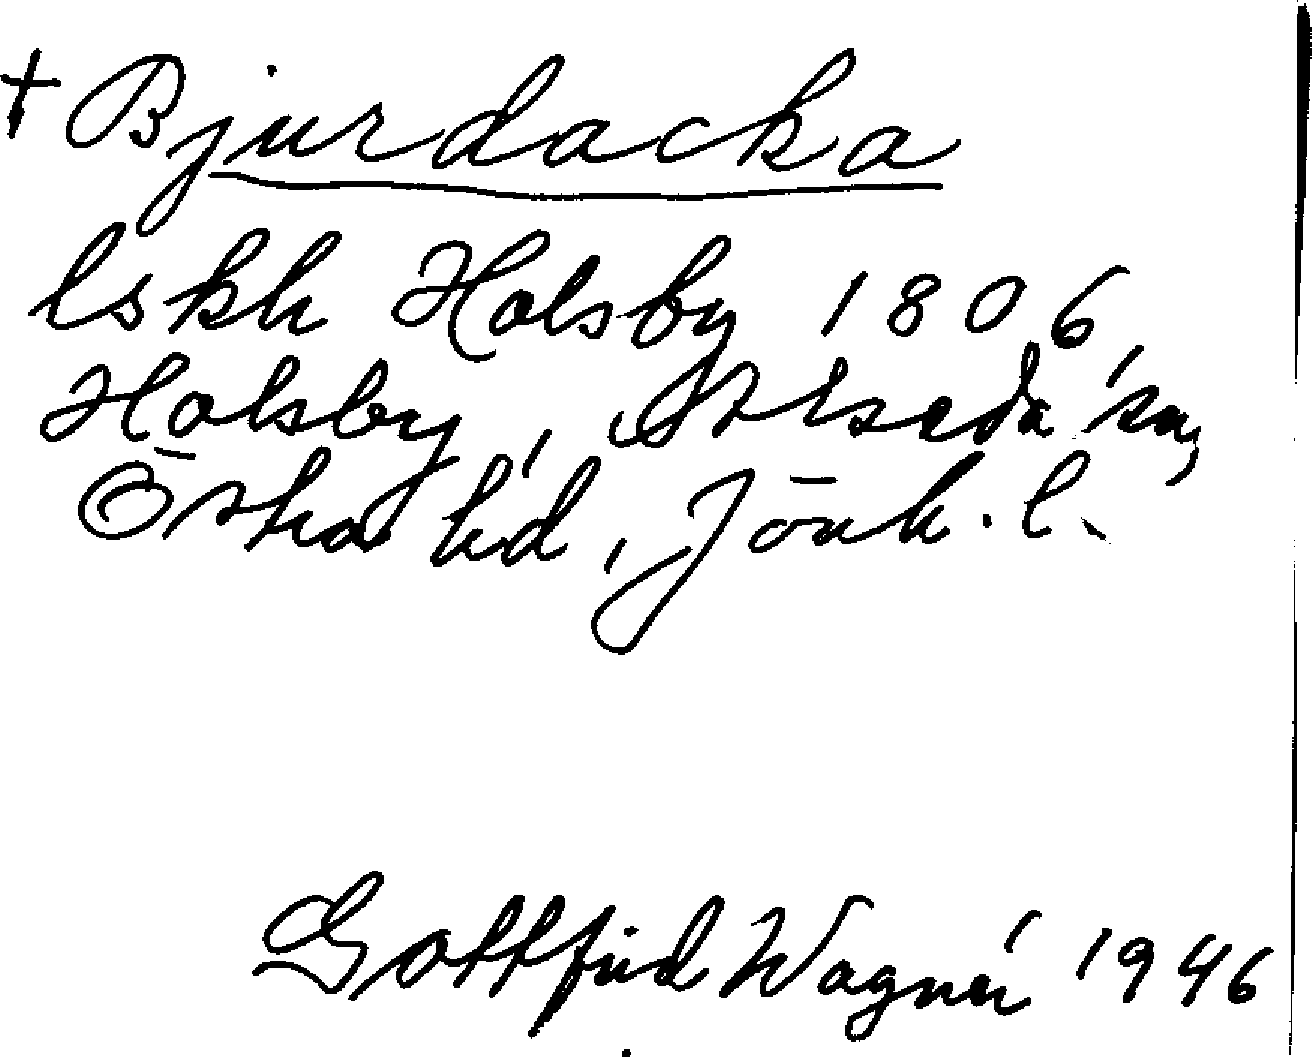 † Bjurdacka
lskh Holsby 1806
Holsby, Alseda sn,
Östra hd, Jönk. l.
Gottfrid Wagnér 1946